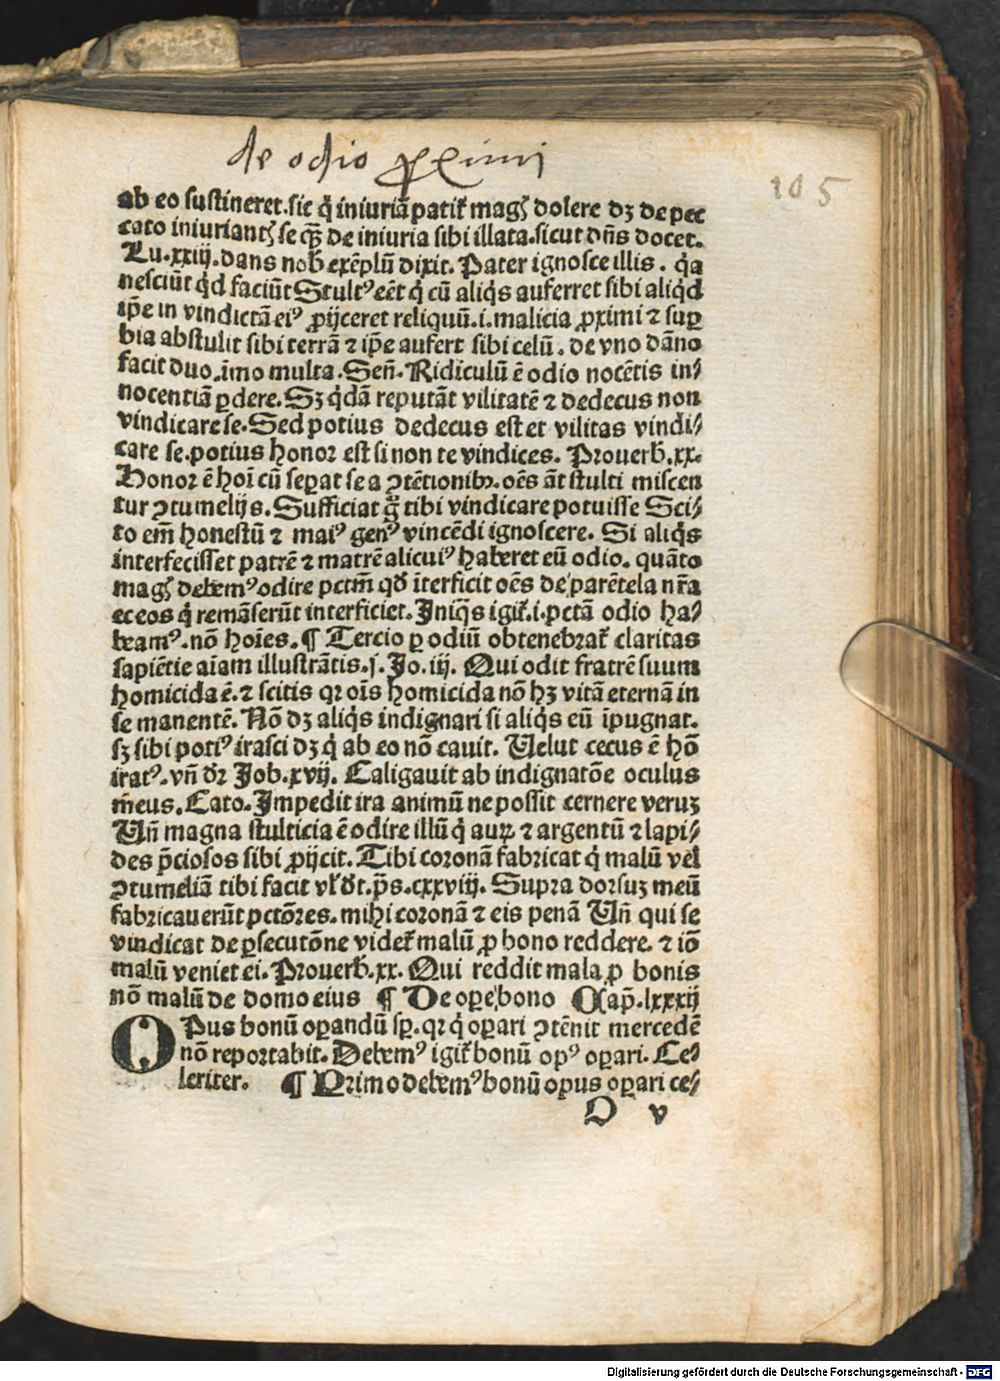 de odio ꝓximi
105
ab eo sustineret.sic q̇ iniuriā patit᷑ magꝭ dolere dꝫ de pec
cato iniuriantꝭ se qȝ̄ de iniuria sibi illata.sicut dn̄s docet.
Lu.xxiij.dans nob̄ exēplū dixit. Pater ignosce illis. q̇a
nesciūt qd̓ faciūt Stultꝰ eēt q̇ cū aliq̇s auferret sibi aliq̇d
ip̄e in vindictā eiꝰ ꝓijceret reliquū.i.malicia ꝓximi ⁊ suꝑ
bia abstulit sibi terrā ⁊ ip̄e aufert sibi celū. de vno dāno
facit duo.imo multa. Sen̄. Ridiculū ē odio nocētis in⸗
nocentiā ꝑdere. Sꝫ q̇dā reputāt vilitatē ⁊ dedecus non
vindicare se. Sed potius dedecus est et vilitas vindi⸗
care se.potius honor est si non te vindices. Prouerb̄.xx.
Honor ē hoī cū seꝑat se a ꝯtētionibꝰ. oēs āt stulti miscen
tur ꝯtumelijs. Sufficiat ꝙ tibi vindicare potuisse Sci⸗
to em̄ honestū ⁊ maiꝰ genꝰ vincēdi ignoscere. Si aliq̇s
interfecisset patrē ⁊ matrē alicuiꝰ haberet eū odio. quāto
magꝭ debemꝰ odire pctm̄ qd̓ īterficit oēs de parētela nr̄a
et eos q̇ remāserūt interficiet. Iniq̇s igit᷑.i.pctā odio ha⸗
beamꝰ. nō hoīes. ¶ Tercio ꝑ odiū obtenebrat᷑ claritas
sapiētie aīam illustrātis.j. Jo. iij. Qui odit fratrē suum
homicida ē. ⁊ scitis qꝛ oīs homicida nō hꝫ vitā eternā in
se manentē. Nō dꝫ aliq̇s indignari si aliq̇s eū īpugnat.
sꝫ sibi potiꝰ irasci dꝫ q̇ ab eo nō cauit. Velut cecus ē hō
iratꝰ. vn̄ dr̄ Job.xvij. Caligauit ab indignatōe oculus
meus. Cato. Impedit ira animū ne possit cernere veruꝫ
Vn̄ magna stulticia ē odire illū q̇ auꝝ ⁊ argentū ⁊ lapi⸗
des p̄ciosos sibi ꝓijcit. Tibi coronā fabricat q̇ malū vel
ꝯtumeliā tibi facit vł dt̓. p̄s.cxxviij. Supra dorsuꝫ meū
fabricauerūt pctōres. mihi coronā ⁊ eis penā Vn̄ qui se
vindicat de ꝑsecutōne videt᷑ malū ꝓ bono reddere. ⁊ iō
malū veniet ei. Prouerb̄.xx. Qui reddit mala ꝓ bonis
nō malū de domo eius ¶ De oꝑe bono Cap̄.lxxxij
OPus bonū oꝑandū sꝑ. qꝛ q̇ oꝑari ꝯtēnit mercedē
nō reportabit. Debemꝰ igit᷑ bonū opꝰ oꝑari. Ce⸗
leriter. ¶ Primo debemꝰ bonū opus oꝑari ce⸗
O v
Digitalisierung gefördert durch die Deutsche Forschungsgemeinschaft - DFG